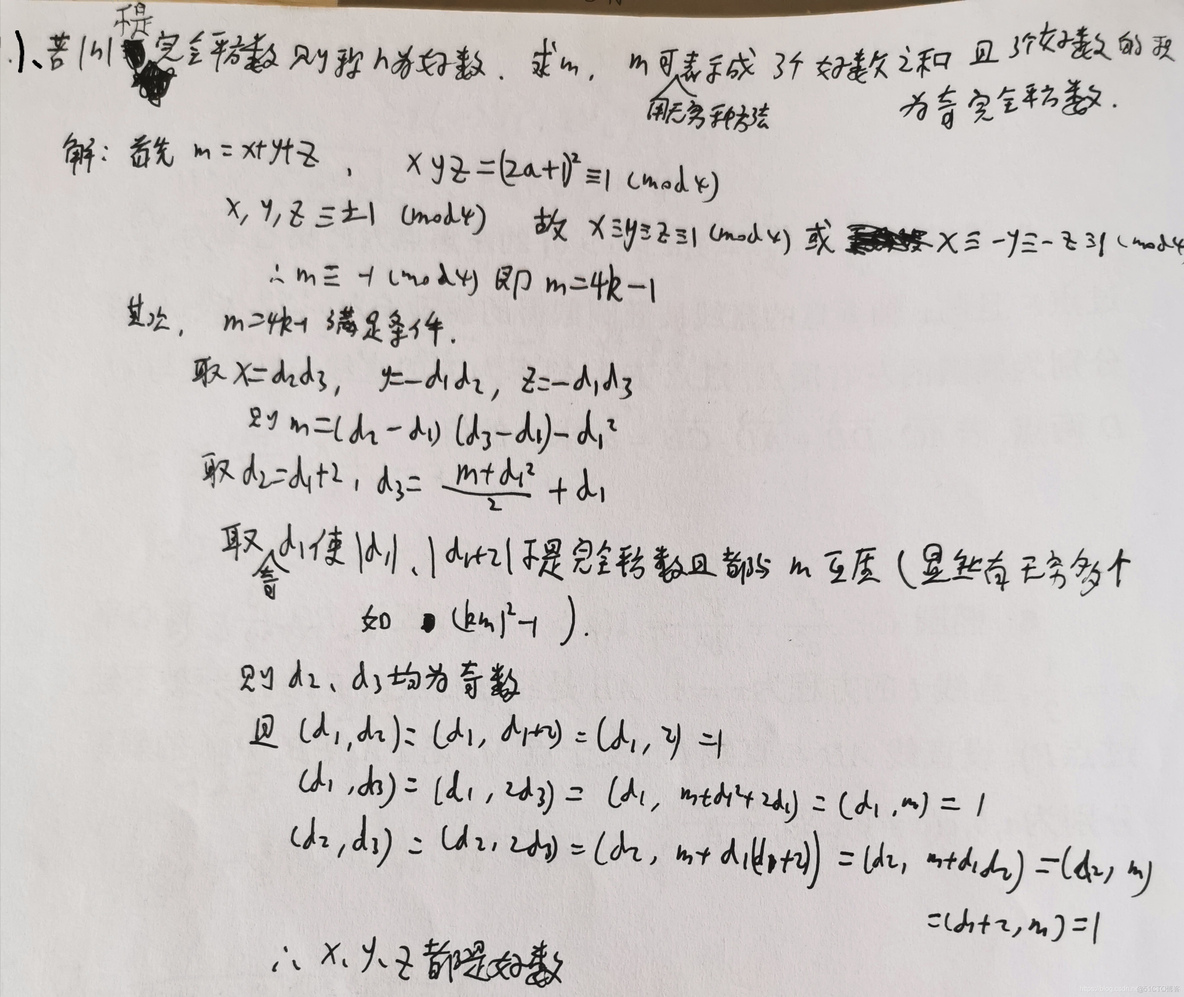 1、若|n|不是完全平方数则称n为好数. 求m, m可表示成3个好数之和且3个好数的积
用无穷种方法 为奇完全平方数.
解: 首先 m=x+y+z, xyz=(2a+1)²≡1 (mod4)
x,y,z≡±1 (mod4) 故 x≡y≡z≡1(mod4) 或 x≡-y≡-z≡1(mod4)
∴m≡-1(mod4) 即 m=4k-1
其次, m=4k-1满足条件.
取x=d₂d₃, y=-d₁d₂, z=-d₁d₃
则m=(d₂-d₁)(d₃-d₁)-d₁²
取d₂=d₁+2, d₃= (m+d₁²)/2 +d₁
取d₁使|d₁|、|d₁+2|不是完全平方数且都与m互质(显然有无穷多个
奇 如 (km)²-1 ).
则d₂、d₃均为奇数
且(d₁,d₂)=(d₁,d₁+2)=(d₁,2)=1
(d₁,d₃)=(d₁,2d₃)=(d₁,m+d₁²+2d₁)=(d₁,m)=1
(d₂,d₃)=(d₂,2d₃)=(d₂,m+d₁(d₁+2))=(d₂,m+d₁d₂)=(d₂,m)
=(d₁+2,m)=1
∴x、y、z都是好数